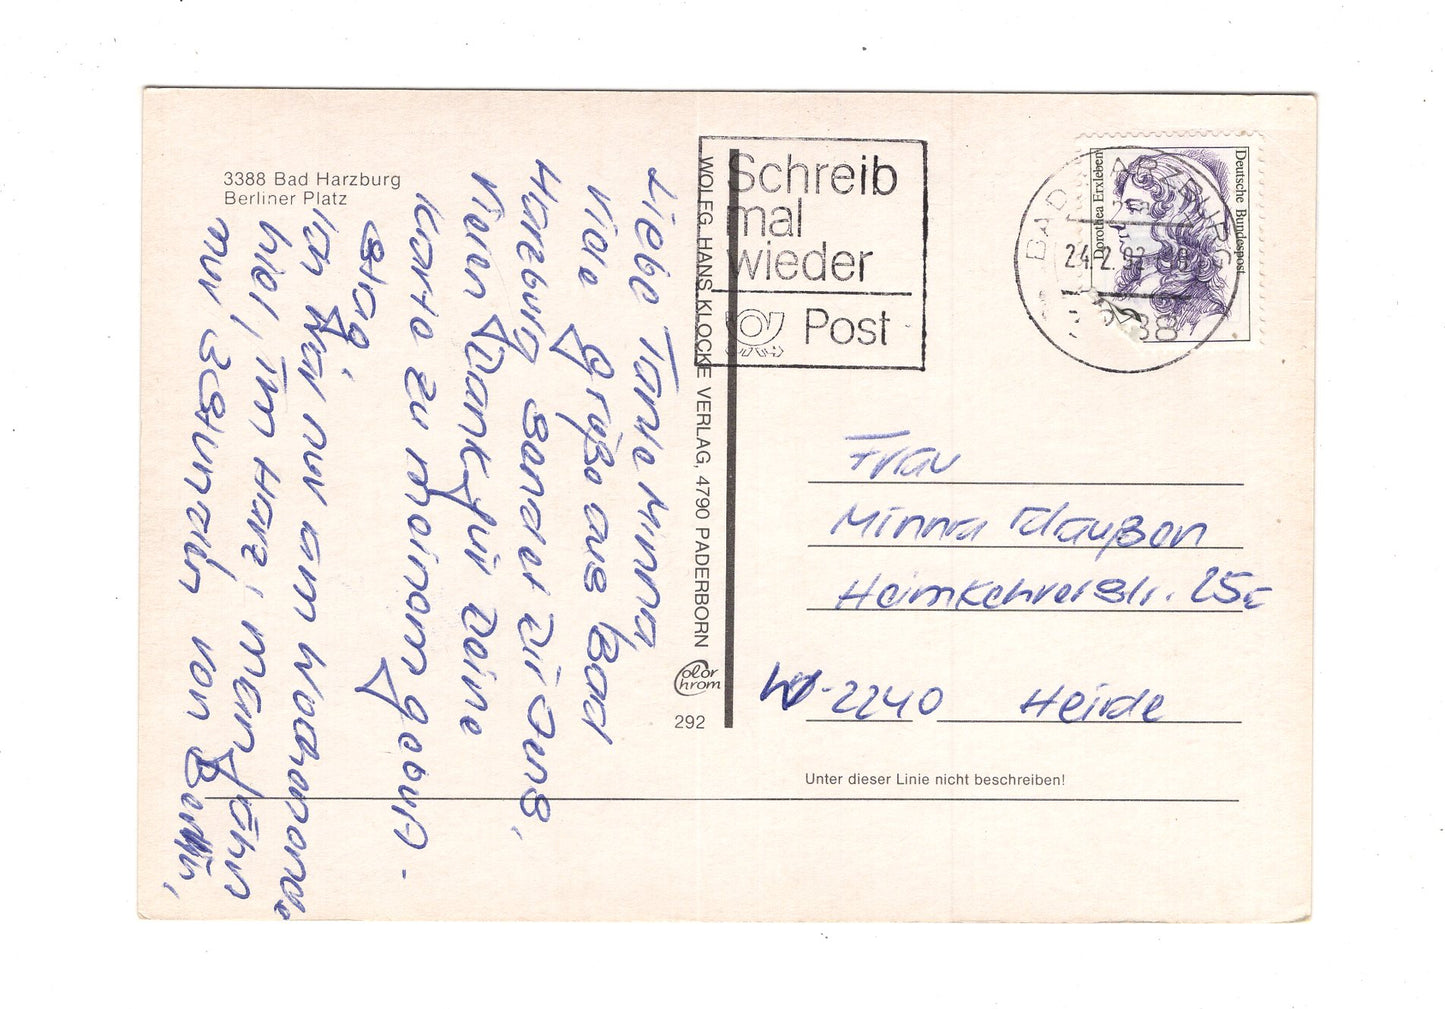 3388 Bad Harzburg
Berliner Platz
Liebe Tante Minna,
viele Grüße aus Bad
Harzburg sendet Dir Jens,
Vielen Dank für Deine
Karte zu meinem Gebur-
stag,
Ich war nur am Wochenende
hier, im Harz, man fährt
nur 3 Stunden von Berlin,
WOLFG. HANS KLOCKE VERLAG, 4790 PADERBORN
Color
Chrom
292
Schreib
mal
wieder
Post
BAD HARZBURG
24.2.92
3388
Dorothea Erxleben
Deutsche Bundespost
Frau
Minna Claußen
Heimkehrerstr. 25c
W-2240 Heide
Unter dieser Linie nicht beschreiben!